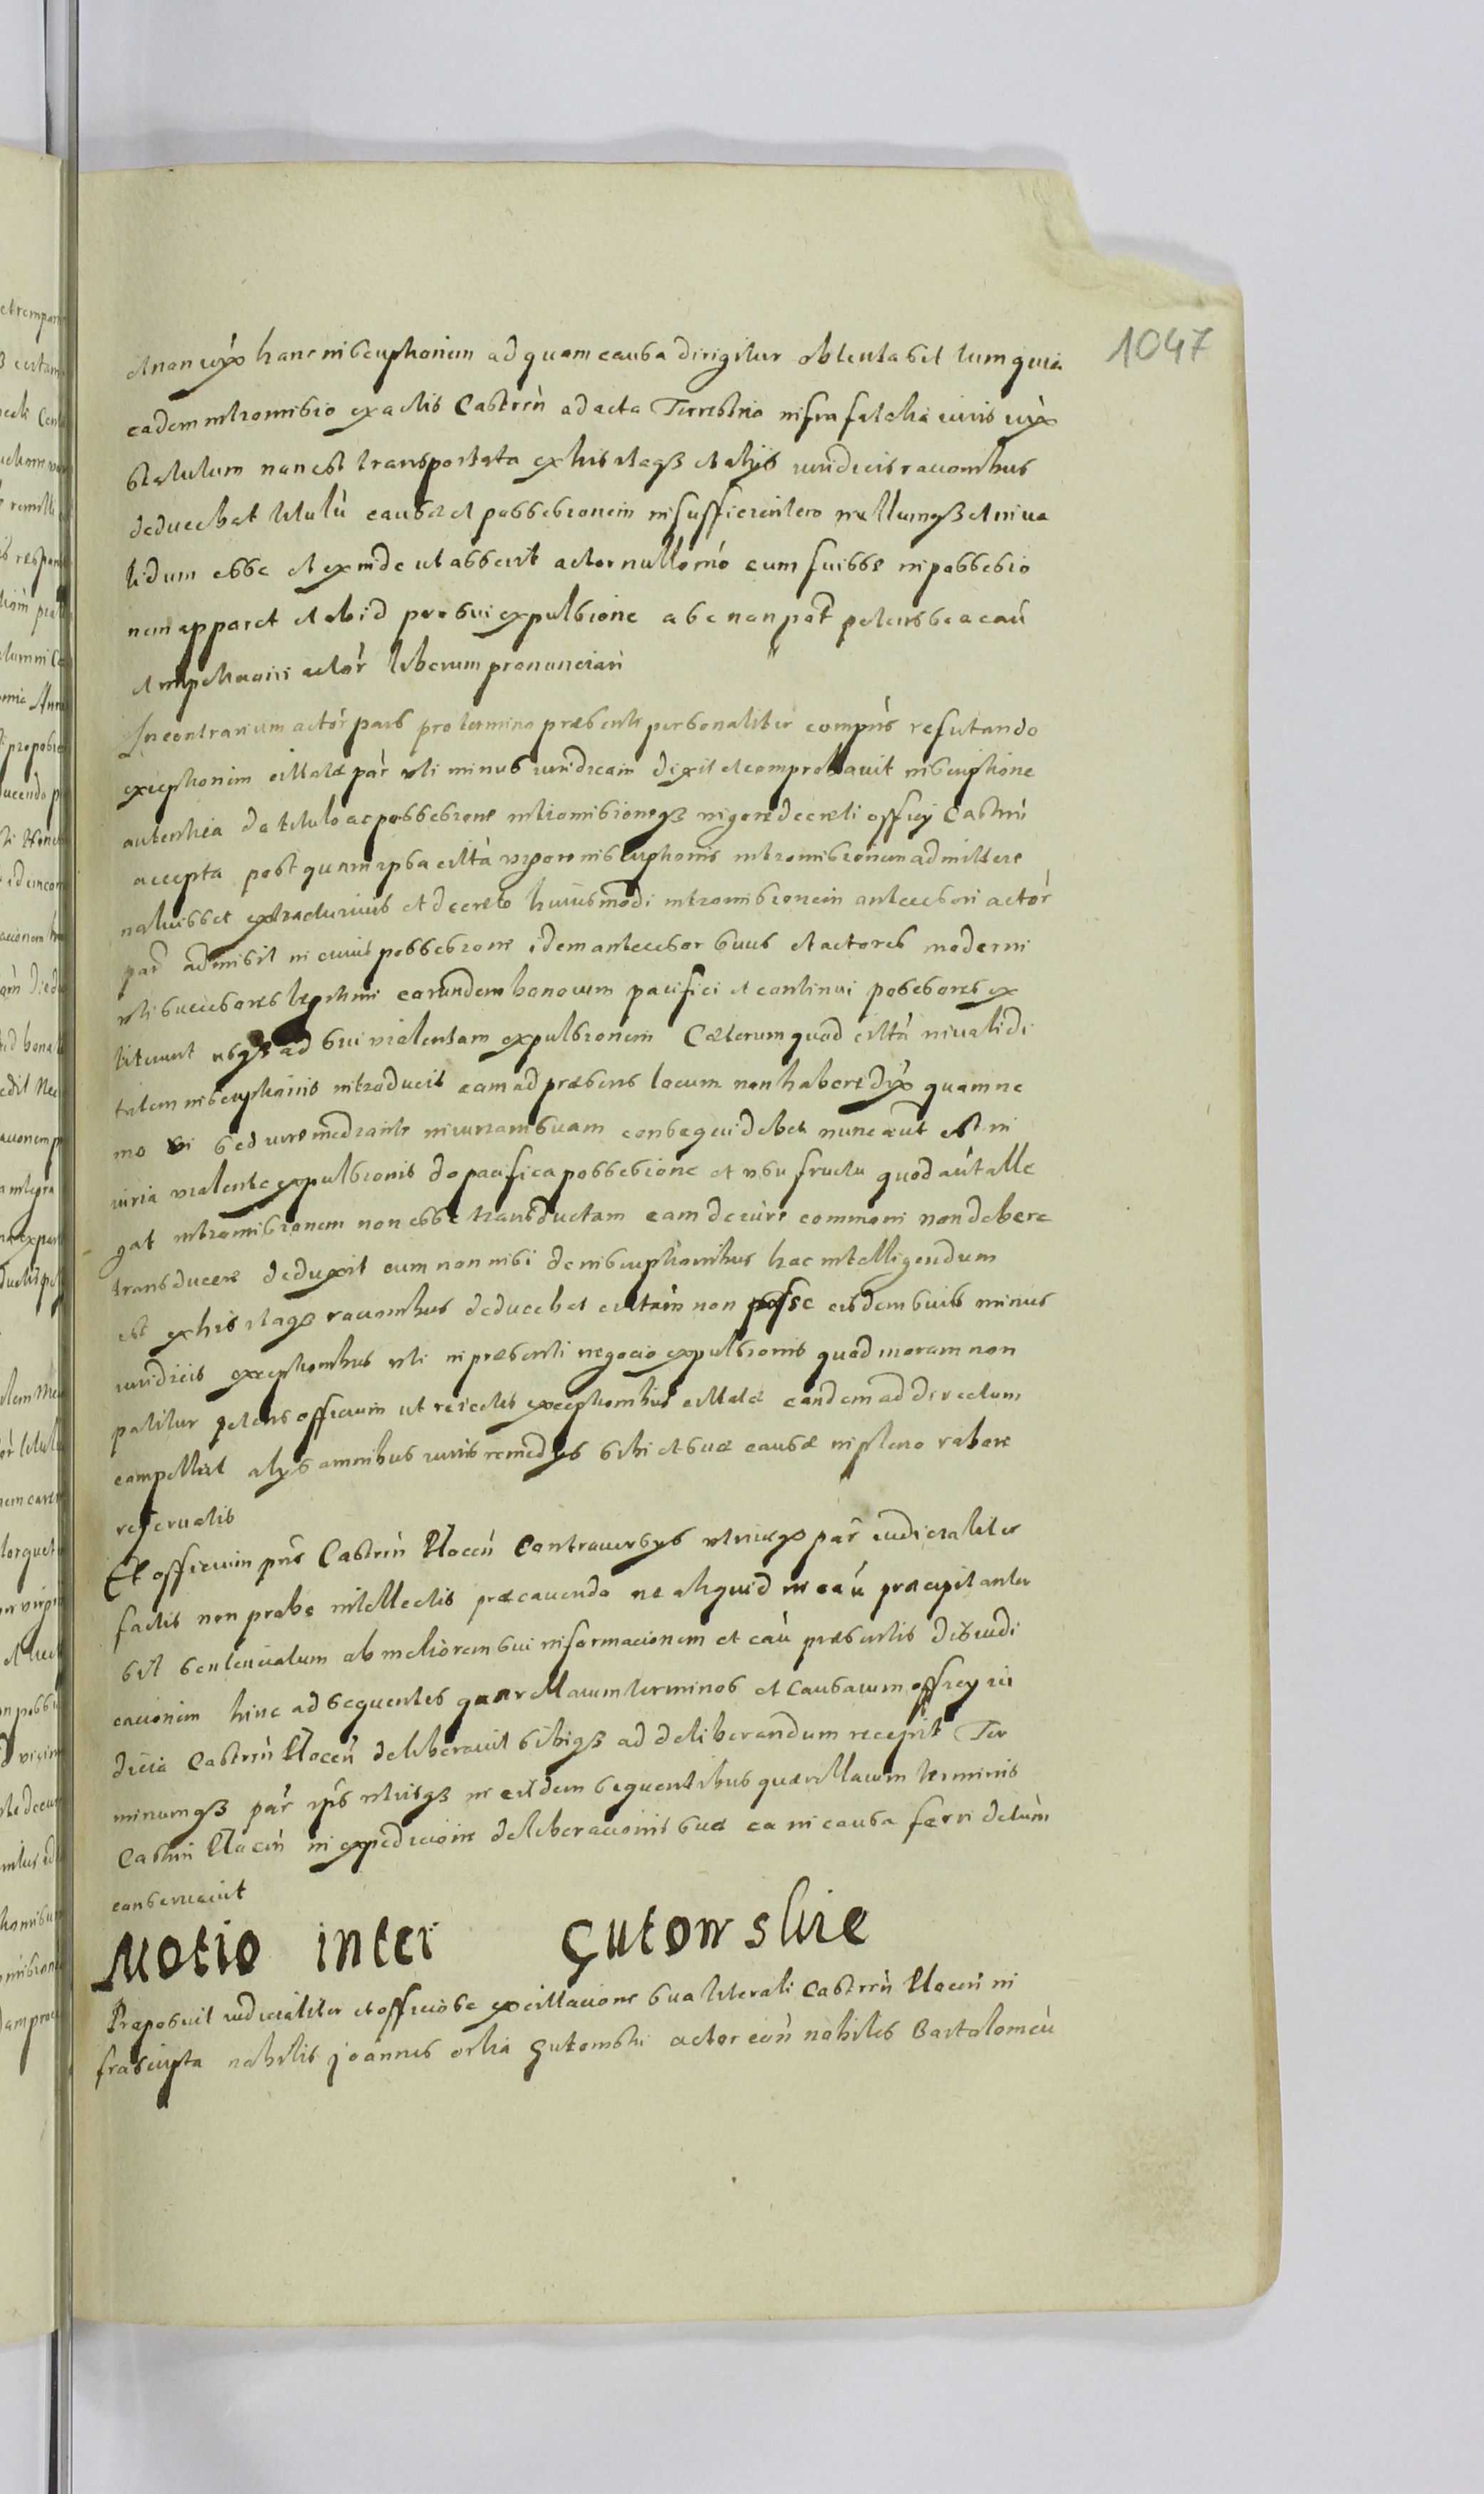 1047
et non iux hanc inscriptionem ad quam causa dirigitur obtenta sit tum quia
eadem intromissio ex actis Castren ad acta Terrestria infra fatalia iuris iux
statutum non est transportata ex his itaqꝫ et alijs iuridicis racionibus
deducebat titulū causæ et possessionem insufficientem nullumqꝫ et inua
lidum esse et exinde ut asserit actor nullo mo eum fuisse in possessio
nem apparet et ob id pro sui expulsione age non pot petens se a cau
et impetitaoīī actor liberum pronunciari
In contrarium actor pars pro termino præsenti personaliter compns refutando
exceptionem citatæ par uti minus iuridicam dixit et comprobauit inscriptione
autentica de titulo ac possessione intromissioneqꝫ uigore decreti officij Castrn
accepta post quam ipsa citta uigore inscriptionis intromissionem admittere
noluisset extracturius et decreto huiusmodi intromissionem antecessori actor
par admisit in cuius possessione idem antecessor suus et actores moderni
uti sucessores legitimi eorundem bonorum pacifici et continui posesores ex
titerunt usqꝫ ad sui violentam expulsionem Cæterum quod citta inualidi
tatem inscriptionis introducit eam ad præsens locum non habere dix quam ne
mo vi sed iure mediante iniuriam suam consequi debet nunc aut est in
iuria violentæ expulsionis de pacifica possesione et usu fructu quod aut alle
gat intromissionem non esse transductam eam de iure commoni non debere
transducere deduxit cum non nisi de inscriptionibus hac intelligendum
est ex his itaqꝫ racionibus deducebat cittam non posse eisdem suis minus
iuridicis exceptionibus uti in præsenti negocio expulsionis quod moram non
patitur petens officium ut reiectis exceptionibus citatæ eandem ad directum
compellat alijs omnibus iuris remedijs sibi et suæ causæ in pleno robore
reseruatis
Et officium pns Castren Plocen Controuersijs utriusqꝫ par iudicialiter
factis non probe intellectis præcauendo ne aliquid in cau præcipitanter
sit sentenciatum ob meliorem sui informacionem et cau præsentis diiudi
cacionem hinc ad sequentes querellarum terminos et Causarum officij iu
dicia Castren Plocen deliberauit sibiqꝫ ad deliberandum recepit Ter
minumqꝫ par ips utrisqꝫ in eisdem sequentibus quærellarum terminis
Castrn Plocen in expedicione deliberacionis suæ ea in causa ferri debitum
conseruauit
Motio inter Gutowskie
Proposuit iudicialiter et officiose ex cittacione sua literali Castren Plocen in
frascripta nobilis Joannes olim Gutowski actor con nobiles Bartolomeū